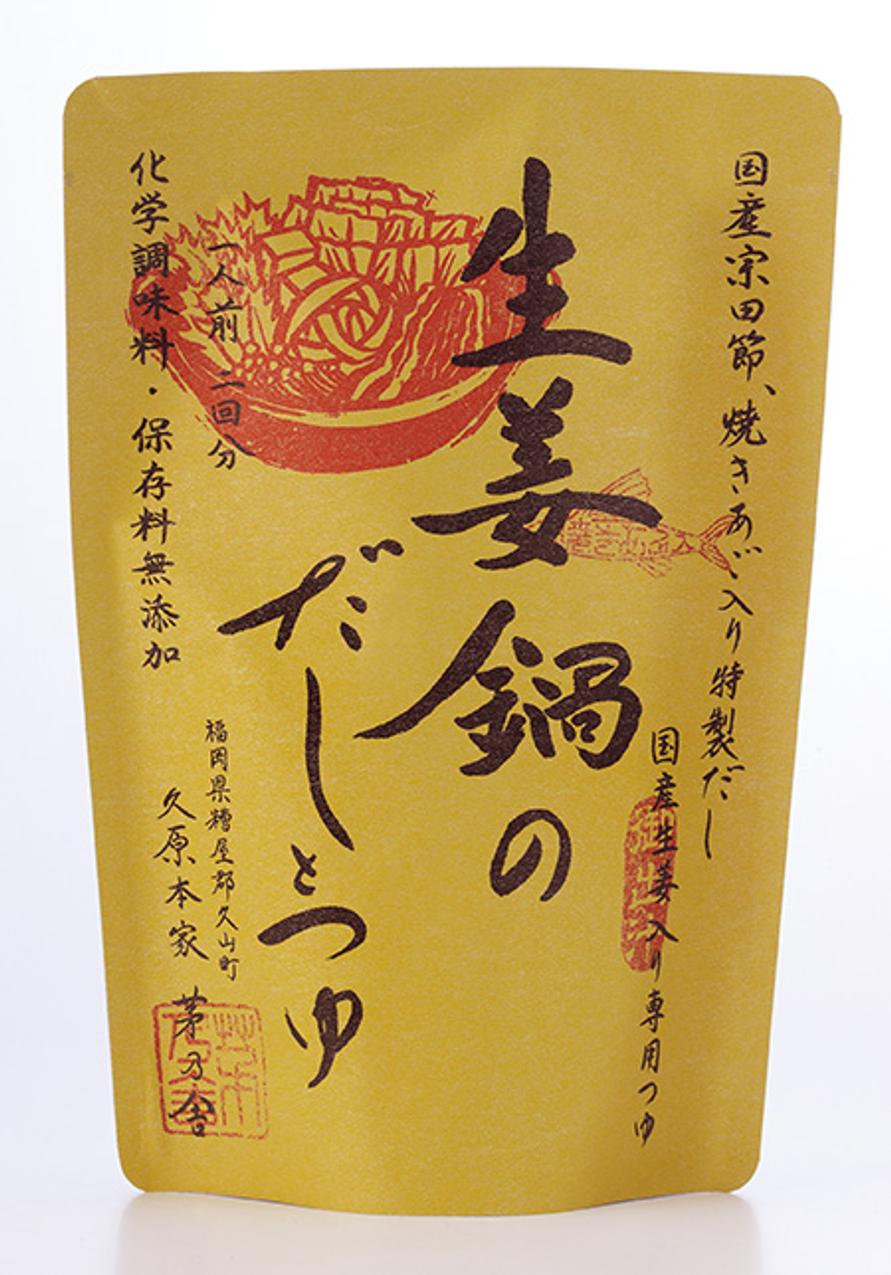 国産宗田節、焼きあご入り特製だし
国産生姜入り専用つゆ
生姜鍋の
だしとつゆ
一人前 二回分
化学調味料・保存料無添加
福岡県糟屋郡久山町
久原本家 茅乃舎